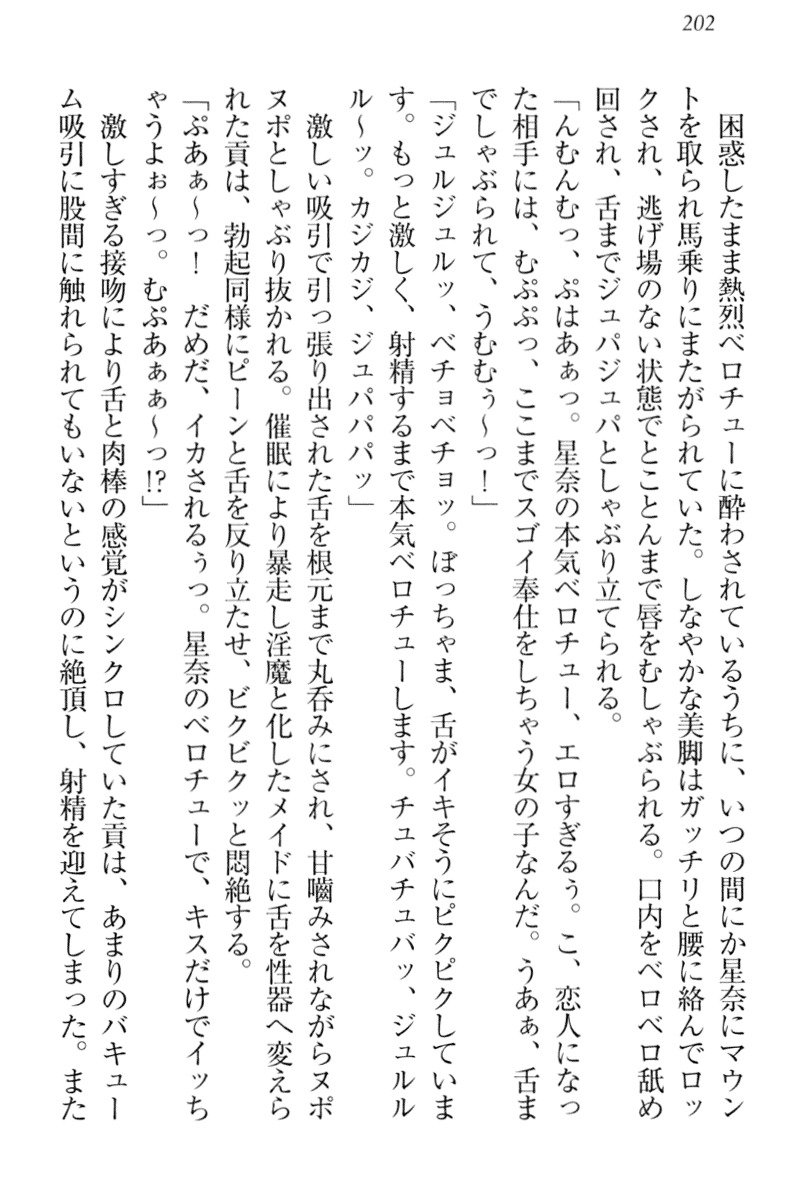 202
困惑したまま熱烈ベロチューに酔わされているうちに、いつの間にか星奈にマウン
トを取られ馬乗りにまたがられていた。しなやかな美脚はガッチリと腰に絡んでロッ
クされ、逃げ場のない状態でとことんまで唇をむしゃぶられる。口内をベロベロ舐め
回され、舌までジュパジュパとしゃぶり立てられる。
「んむんむっ、ぷはあぁっ。星奈の本気ベロチュー、エロすぎるぅ。こ、恋人になっ
た相手には、むぷぷっ、ここまでスゴイ奉仕をしちゃう女の子なんだ。うあぁ、舌ま
でしゃぶられて、うむむぅ～っ！」
「ジュルジュルッ、ベチョベチョッ。ぼっちゃま、舌がイキそうにピクピクしていま
す。もっと激しく、射精するまで本気ベロチューします。チュバチュバッ、ジュルル
ル～ッ。カジカジ、ジュパパパッ」
激しい吸引で引っ張り出された舌を根元まで丸呑みにされ、甘嚙みされながらヌポ
ヌポとしゃぶり抜かれる。催眠により暴走し淫魔と化したメイドに舌を性器へ変えら
れた貢は、勃起同様にピーンと舌を反り立たせ、ビクビクッと悶絶する。
「ぷあぁ～っ！　だめだ、イカされるぅっ。星奈のベロチューで、キスだけでイッち
ゃうよぉ～っ。むぷあぁぁ～っ!?」
激しすぎる接吻により舌と肉棒の感覚がシンクロしていた貢は、あまりのバキュー
ム吸引に股間に触れられてもいないというのに絶頂し、射精を迎えてしまった。また